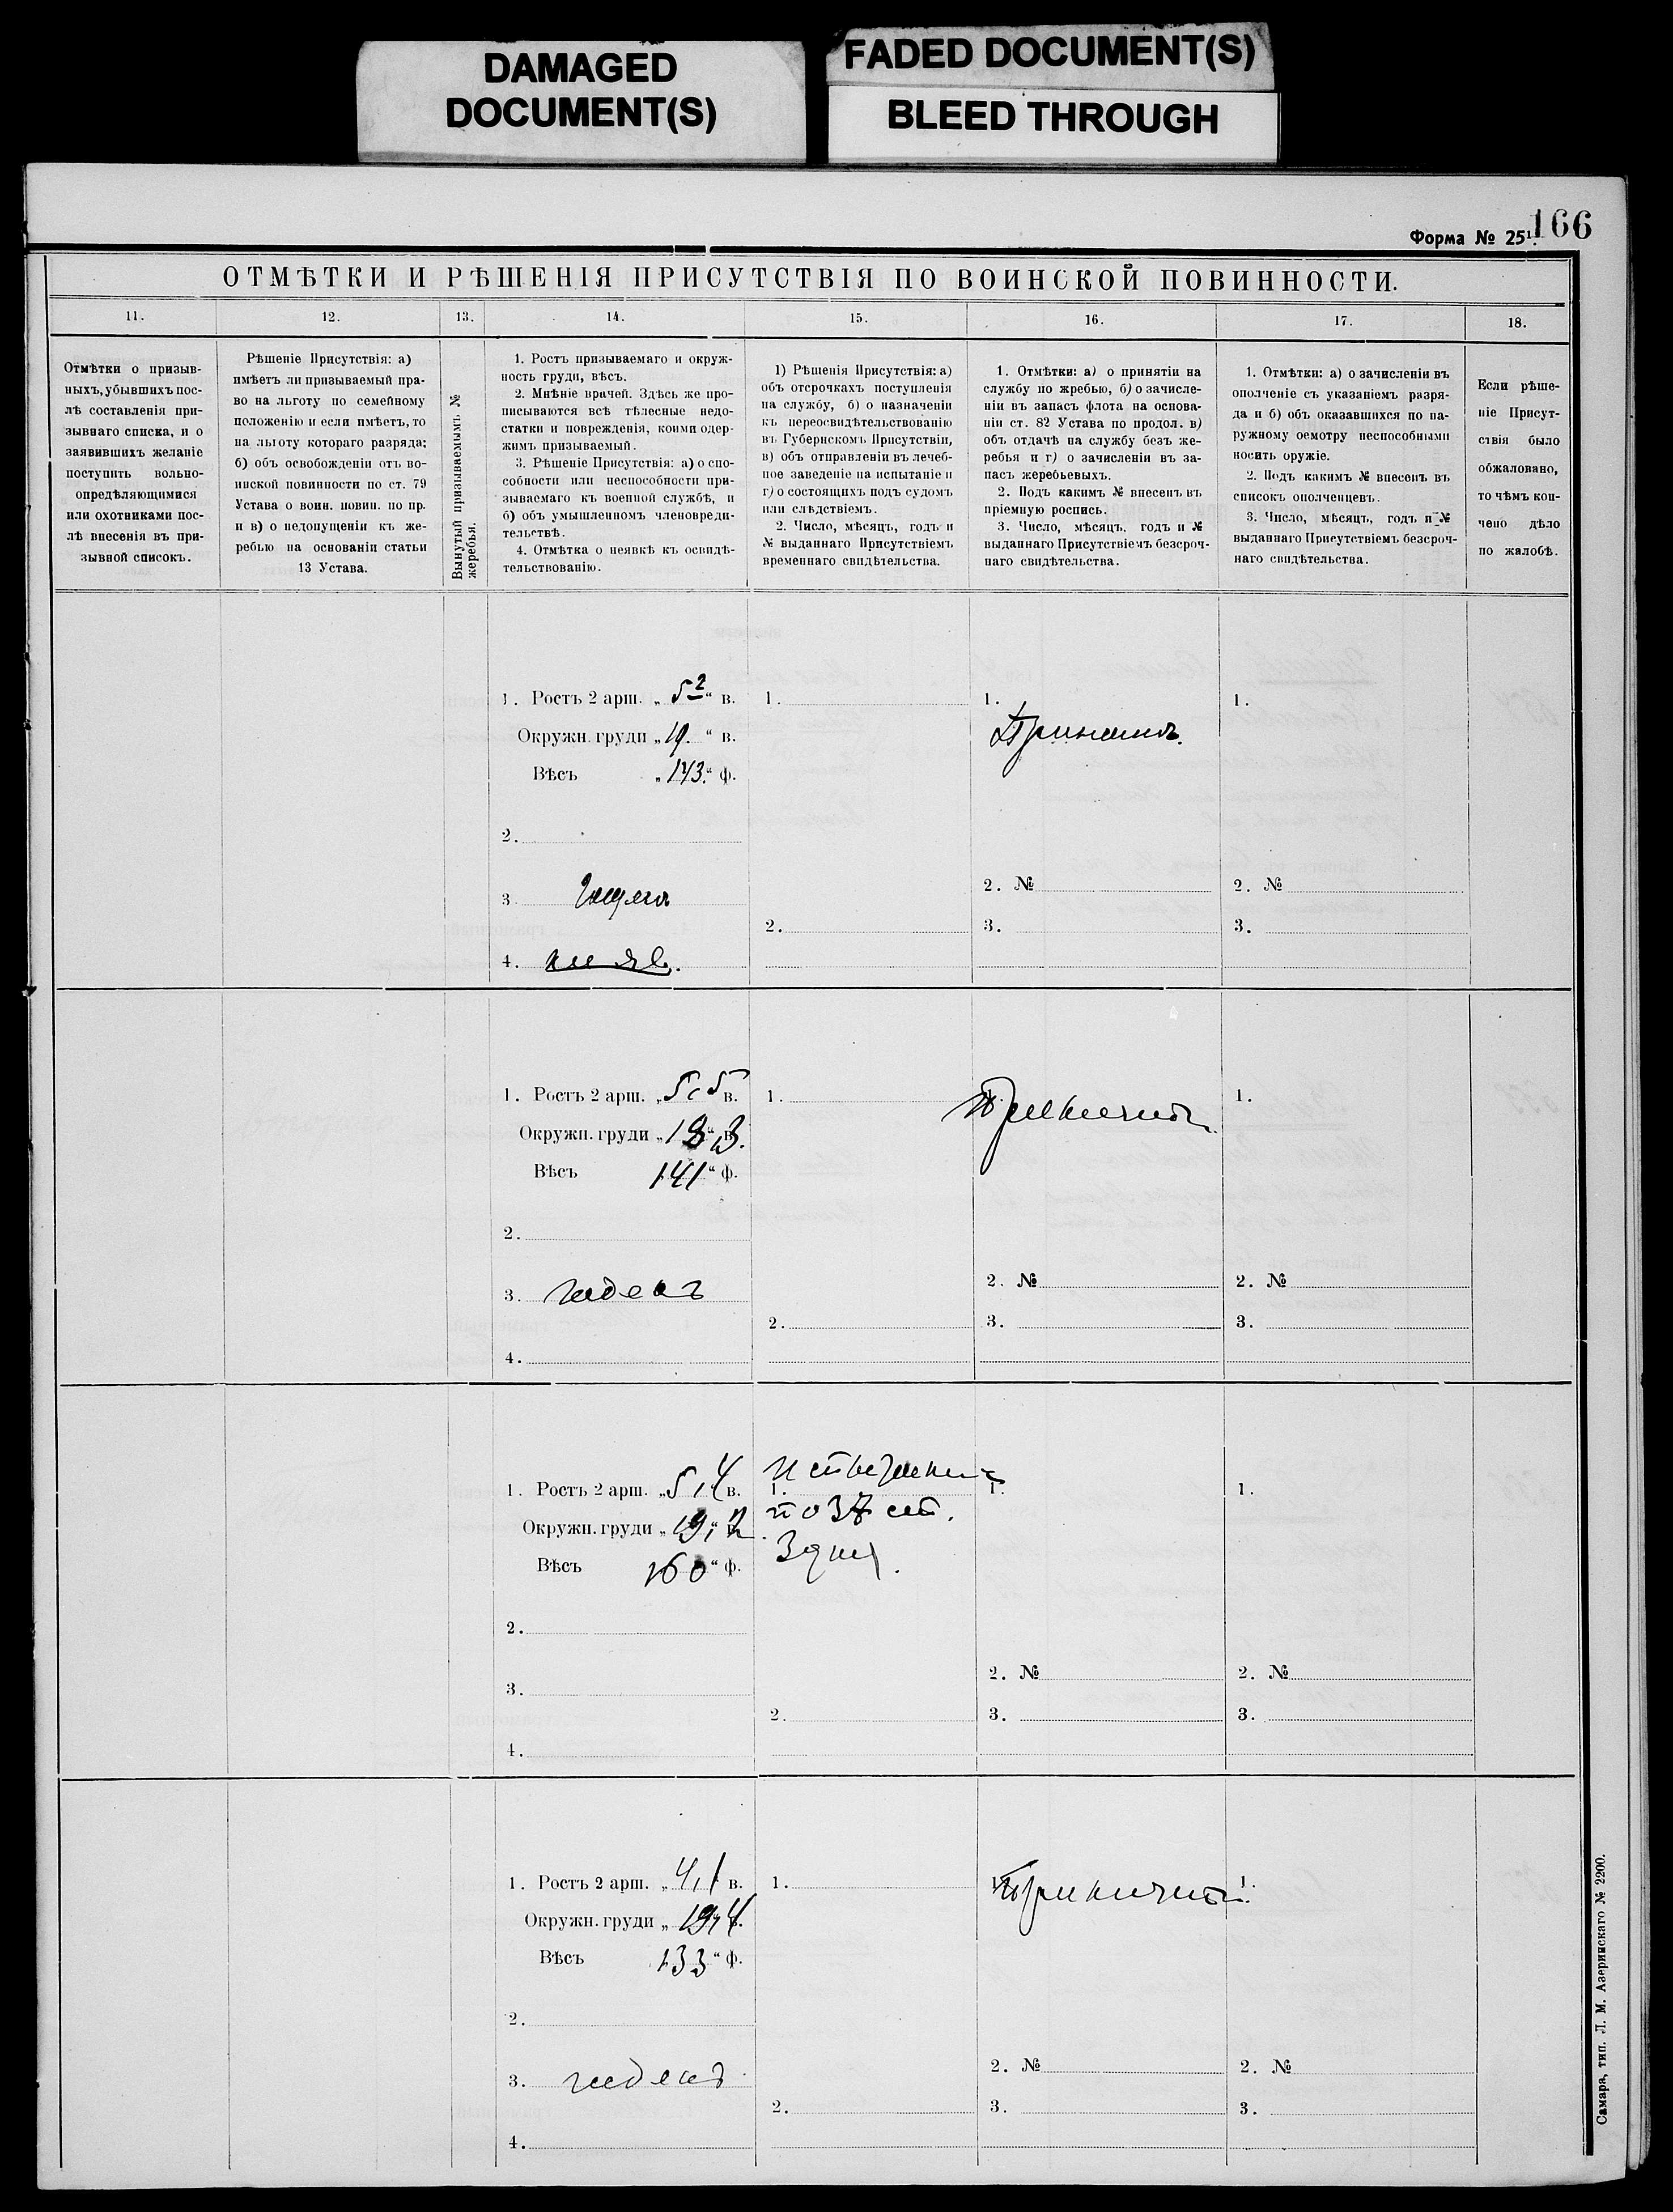 DAMAGED
DOCUMENT(S)
FADED DOCUMENT(S)
BLEED THROUGH
166
Форма № 25¹.
ОТМѢТКИ И РѢШЕНІЯ ПРИСУТСТВІЯ ПО ВОИНСКОЙ ПОВИННОСТИ.
11.
12.
13.
14.
15.
16.
17.
18.
Отмѣтки о призыв-
ныхъ, убывшихъ пос-
лѣ составленія при-
зывнаго списка, и о
заявившихъ желаніе
поступить вольно-
опредѣляющимися
или охотниками пос-
лѣ внесенія въ при-
зывной списокъ.
Рѣшеніе Присутствія: а)
имѣетъ ли призываемый пра-
во на льготу по семейному
положенію и если имѣетъ, то
на льготу котораго разряда;
б) объ освобожденіи отъ во-
инской повинности по ст. 79
Устава о воин. повин. по пр.
и в) о недопущеніи къ же-
ребью на основаніи статьи
13 Устава.
Вынутый призываемымъ №
жеребья.
1. Ростъ призываемаго и окруж-
ность груди, вѣсъ.
2. Мнѣніе врачей. Здѣсь же про-
писываются всѣ тѣлесные недо-
статки и поврежденія, коими одер-
жимъ призываемый.
3. Рѣшеніе Присутствія: а) о спо-
собности или неспособности при-
зываемаго къ военной службѣ, и
б) объ умышленномъ членовреди-
тельствѣ.
4. Отмѣтка о неявкѣ къ освидѣ-
тельствованію.
1) Рѣшенія Присутствія: а)
объ отсрочкахъ поступленія
на службу, б) о назначеніи
къ переосвидѣтельствованію
въ Губернскомъ Присутствіи,
в) объ отправленіи въ лечеб-
ное заведеніе на испытаніе и
г) о состоящихъ подъ судомъ
или слѣдствіемъ.
2. Число, мѣсяцъ, годъ и
№ выданнаго Присутствіемъ
временнаго свидѣтельства.
1. Отмѣтки: а) о принятіи на
службу по жребью, б) о зачисле-
ніи въ запасъ флота на основа-
ніи ст. 82 Устава по продол. в)
объ отдачѣ на службу безъ же-
ребья и г) о зачисленіи въ за-
пасъ жеребьевыхъ.
2. Подъ какимъ № внесенъ въ
пріемную роспись.
3. Число, мѣсяцъ, годъ и №
выданнаго Присутствіемъ безсроч-
наго свидѣтельства.
1. Отмѣтки: а) о зачисленіи въ
ополченіе съ указаніемъ разря-
да и б) объ оказавшихся по на-
ружному осмотру неспособными
носить оружіе.
2. Подъ какимъ № внесенъ въ
списокъ ополченцевъ.
3. Число, мѣсяцъ, годъ и №
выданнаго Присутствіемъ безсроч-
наго свидѣтельства.
Если рѣше-
ніе Присут-
ствія было
обжаловано,
то чѣмъ кон-
чено дѣло
по жалобѣ.
1. Ростъ 2 арш. „ 5 2 “ в.
Окружн. груди „ 19. “ в.
Вѣсъ „ 143. “ ф.
2.
3. Годенъ
4.
1.
2.
1.
Принятъ.
2. №
3.
1.
2. №
3.
1. Ростъ 2 арш. „ 5,5 в.
Окружн. груди „ 18,3. в.
Вѣсъ 141 “ ф.
2.
3. годенъ
4.
1.
2.
1. Принятъ.
2. №
3.
1.
2. №
3.
1. Ростъ 2 арш. „ 5,4 в.
Окружн. груди „ 19,2 в.
Вѣсъ 160 “ ф.
2.
3.
4.
1.
по 37 ст.
2.
1.
2. №
3.
1.
2. №
3.
1. Ростъ 2 арш. „ 4,1 в.
Окружн. груди „ 19,4 в.
Вѣсъ 133 “ ф.
2.
3. годенъ
4.
1.
2.
1. Принятъ.
2. №
3.
1.
2. №
3.
Самара, тип. Л. М. Азеринскаго № 2200.